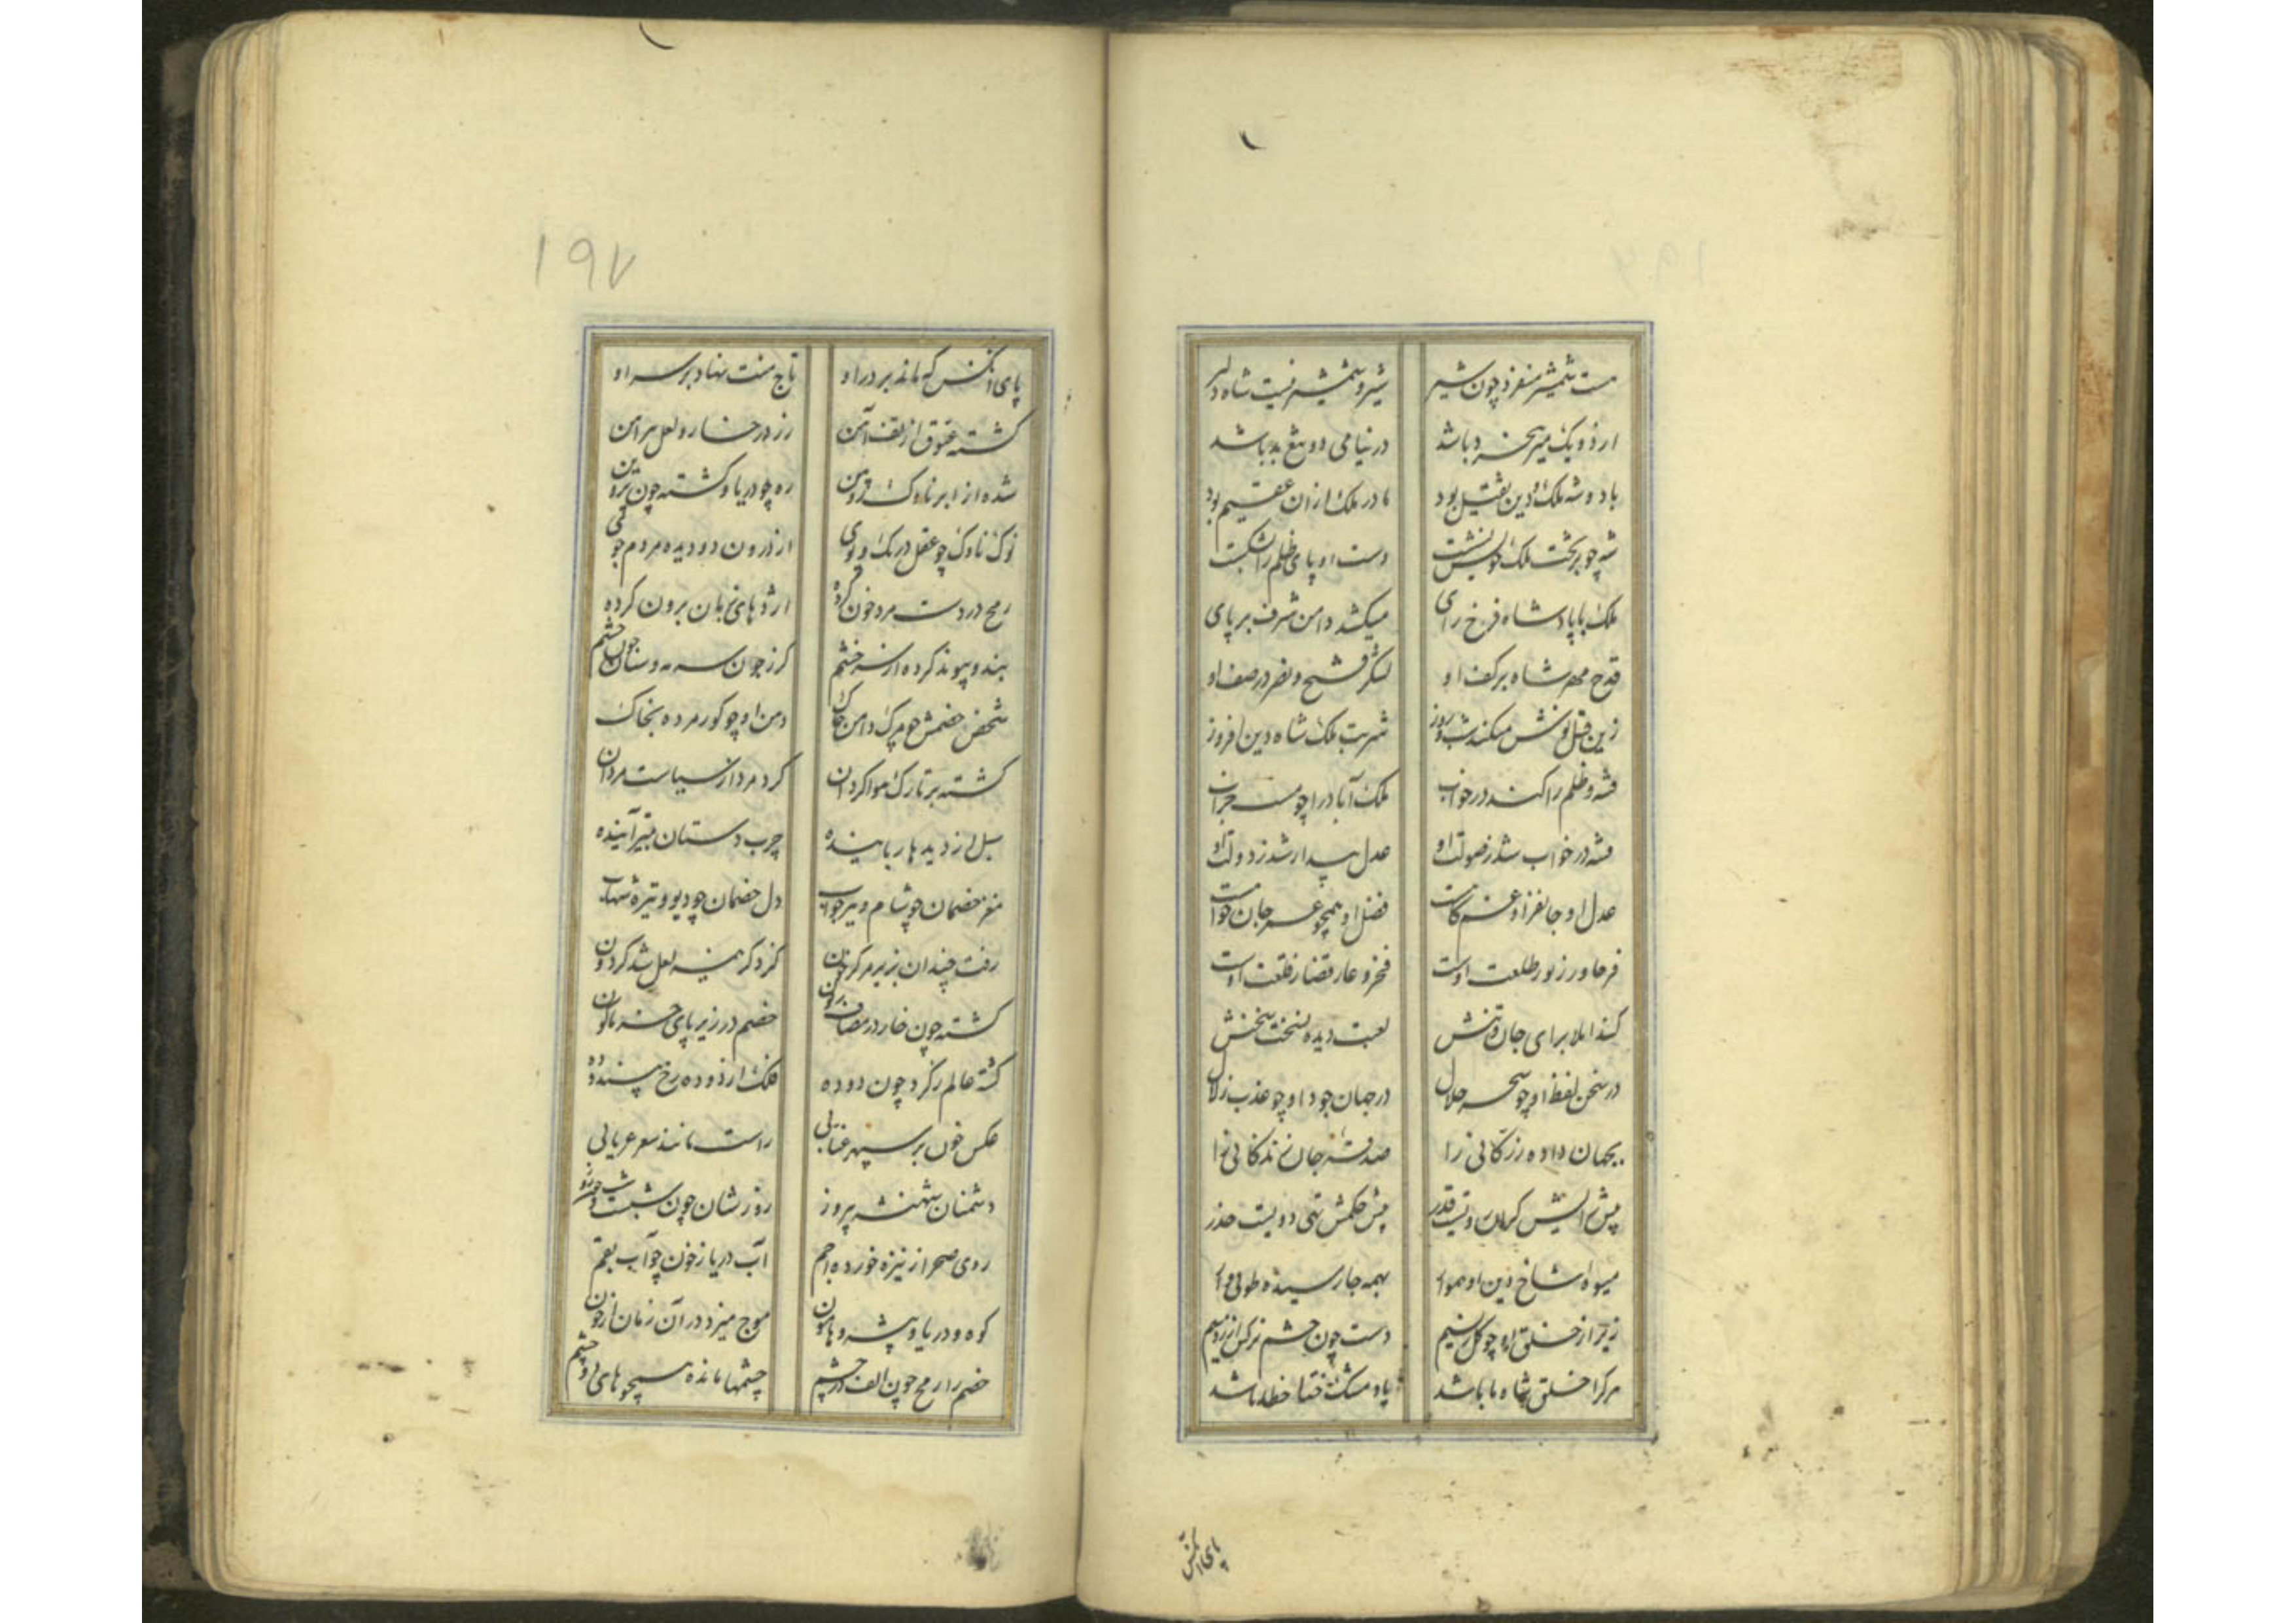 هست شمشیر مغز او چون شیر شیر و شمشیر نیست شاه دلیر
از دو یک میر بخرد باشد در نیامی دو تیغ بد باشد
با دو شه ملک و دین ثقیل بود مادر ملک ازان عقیم بود
شه چو بر تخت ملک نشست دست او پای ظلم را بشکست
ملک با پادشاه فرخ رای میکشد دامن شرف بر پای
قدح مهر شاه بر کف او لشکر فتح و نصر در صف او
زین قبل نوش میکند شب و روز شربت ملک شاه دین افروز
فتنه و ظلم را کند در خواب ملک آباد را چو مست خراب
فتنه در خواب شد ز صولت او عدل بیدار شد ز دولت او
عدل او جانفزا و غم کاهست فضل او همچو عمر جان خواهست
فر ما ورز نور طلعت اوست فخر و عار قضا ز خلعت اوست
کند املا برای جان و تنش لعبت دیده نسخت سخنش
در سخن لفظ او چو سحر حلال در جهان جود او چو عذب زلال
بجهان داده رزکانی را صدقه جان زندکانی را
پیش حکمش تهی دویست حذر
میوه شاخ دین او هموار بهمه جا رسیده طوبی وار
زیر از خلق او چو کل نسیم دست چون چشم نرکس از زر و سیم
هر کرا خلق شاه ما باشد یاد مشک ختا خطا باشد
پای انکس
۱۹۷
پای انکس که ماند بر در او تاج منت نهاد بر سر او
کشته فتوق از تف آهن زر در خسار و لعل پیراهن
شده از ابر ناوک و زمین ره چو دریا و کشته چون پروین
نوک ناوک چو عقل در تک و پوی از درون دو دیده مردم جوی
رمح در دست مرد خون کرده اژدهای زبان برون کرده
بند و پیوند کرده از سر خشم کرز چون سرمه و سنان چون چشم
شخص خصمش چو مرک دامن چاک دهن او چو کور مرده بخاک
کشته بر تارک هوا کردان کرد مرد از سیاست مردان
سبل از دیدها رباینده چرب دستان بتیر آینده
مغز خصمان چو شام و تیر چو آب دل خصمان چو دیو و تیره شهاب
رفت چندان ز تیر مرکز خون کز دکر همنه لعل شد کردون
کشته چون خار در مصاف زبون خصم در زیر پای خسته نکون
کشته عالم ز کرد چون دوده فلک از دوده رخ بیندوده
عکس خون بر سپهر عنابی راست مانند سعر عریابی
دشمنان شهنشه پیروز روز شان چون شبست و شب چون روز
روی صحرا ز نیزه خورده اجم آب دریا ز خون چو آب بقم
کوه و دریا و بیشه و هامون موج میزد در آن زمان از خون
خصم را رمح چون الف در چشم چشمها مانده همچو های دو چشم